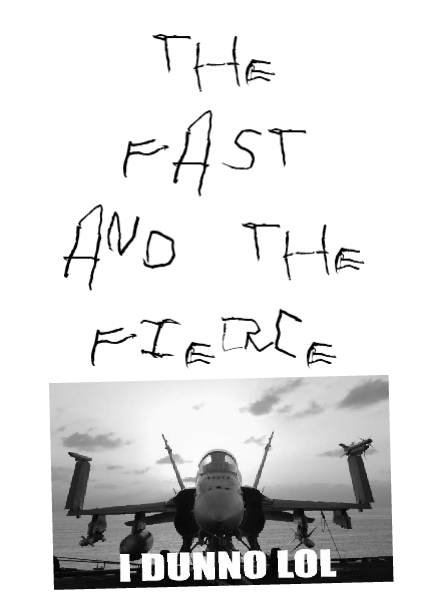 THE
FAST
AND THE
FIERCE
I DUNNO LOL